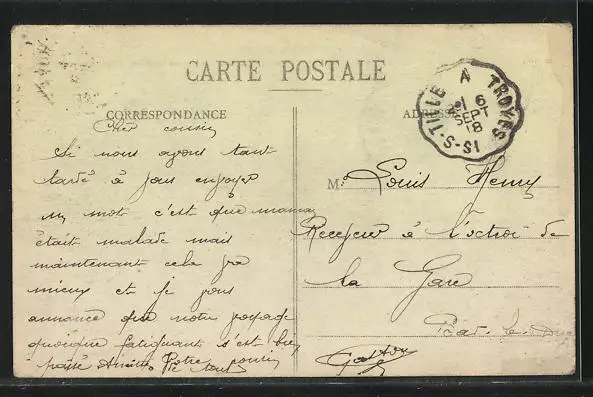 CARTE POSTALE
CORRESPONDANCE
Cher cousin
Si nous avons tant
tardé à vous envoyer
un mot c'est que maman
était malade mais
maintenant cela va
mieux et je vous
annonce que notre voyage
quoique fatiguant s'est bien
passé Votre cousin
ADRESSE
M. Louis Henry
Receveur à l'octroi de
la Gare
Bar-le-Duc
Gaston
IS-S-TILLE A TROYES
16
SEPT
18